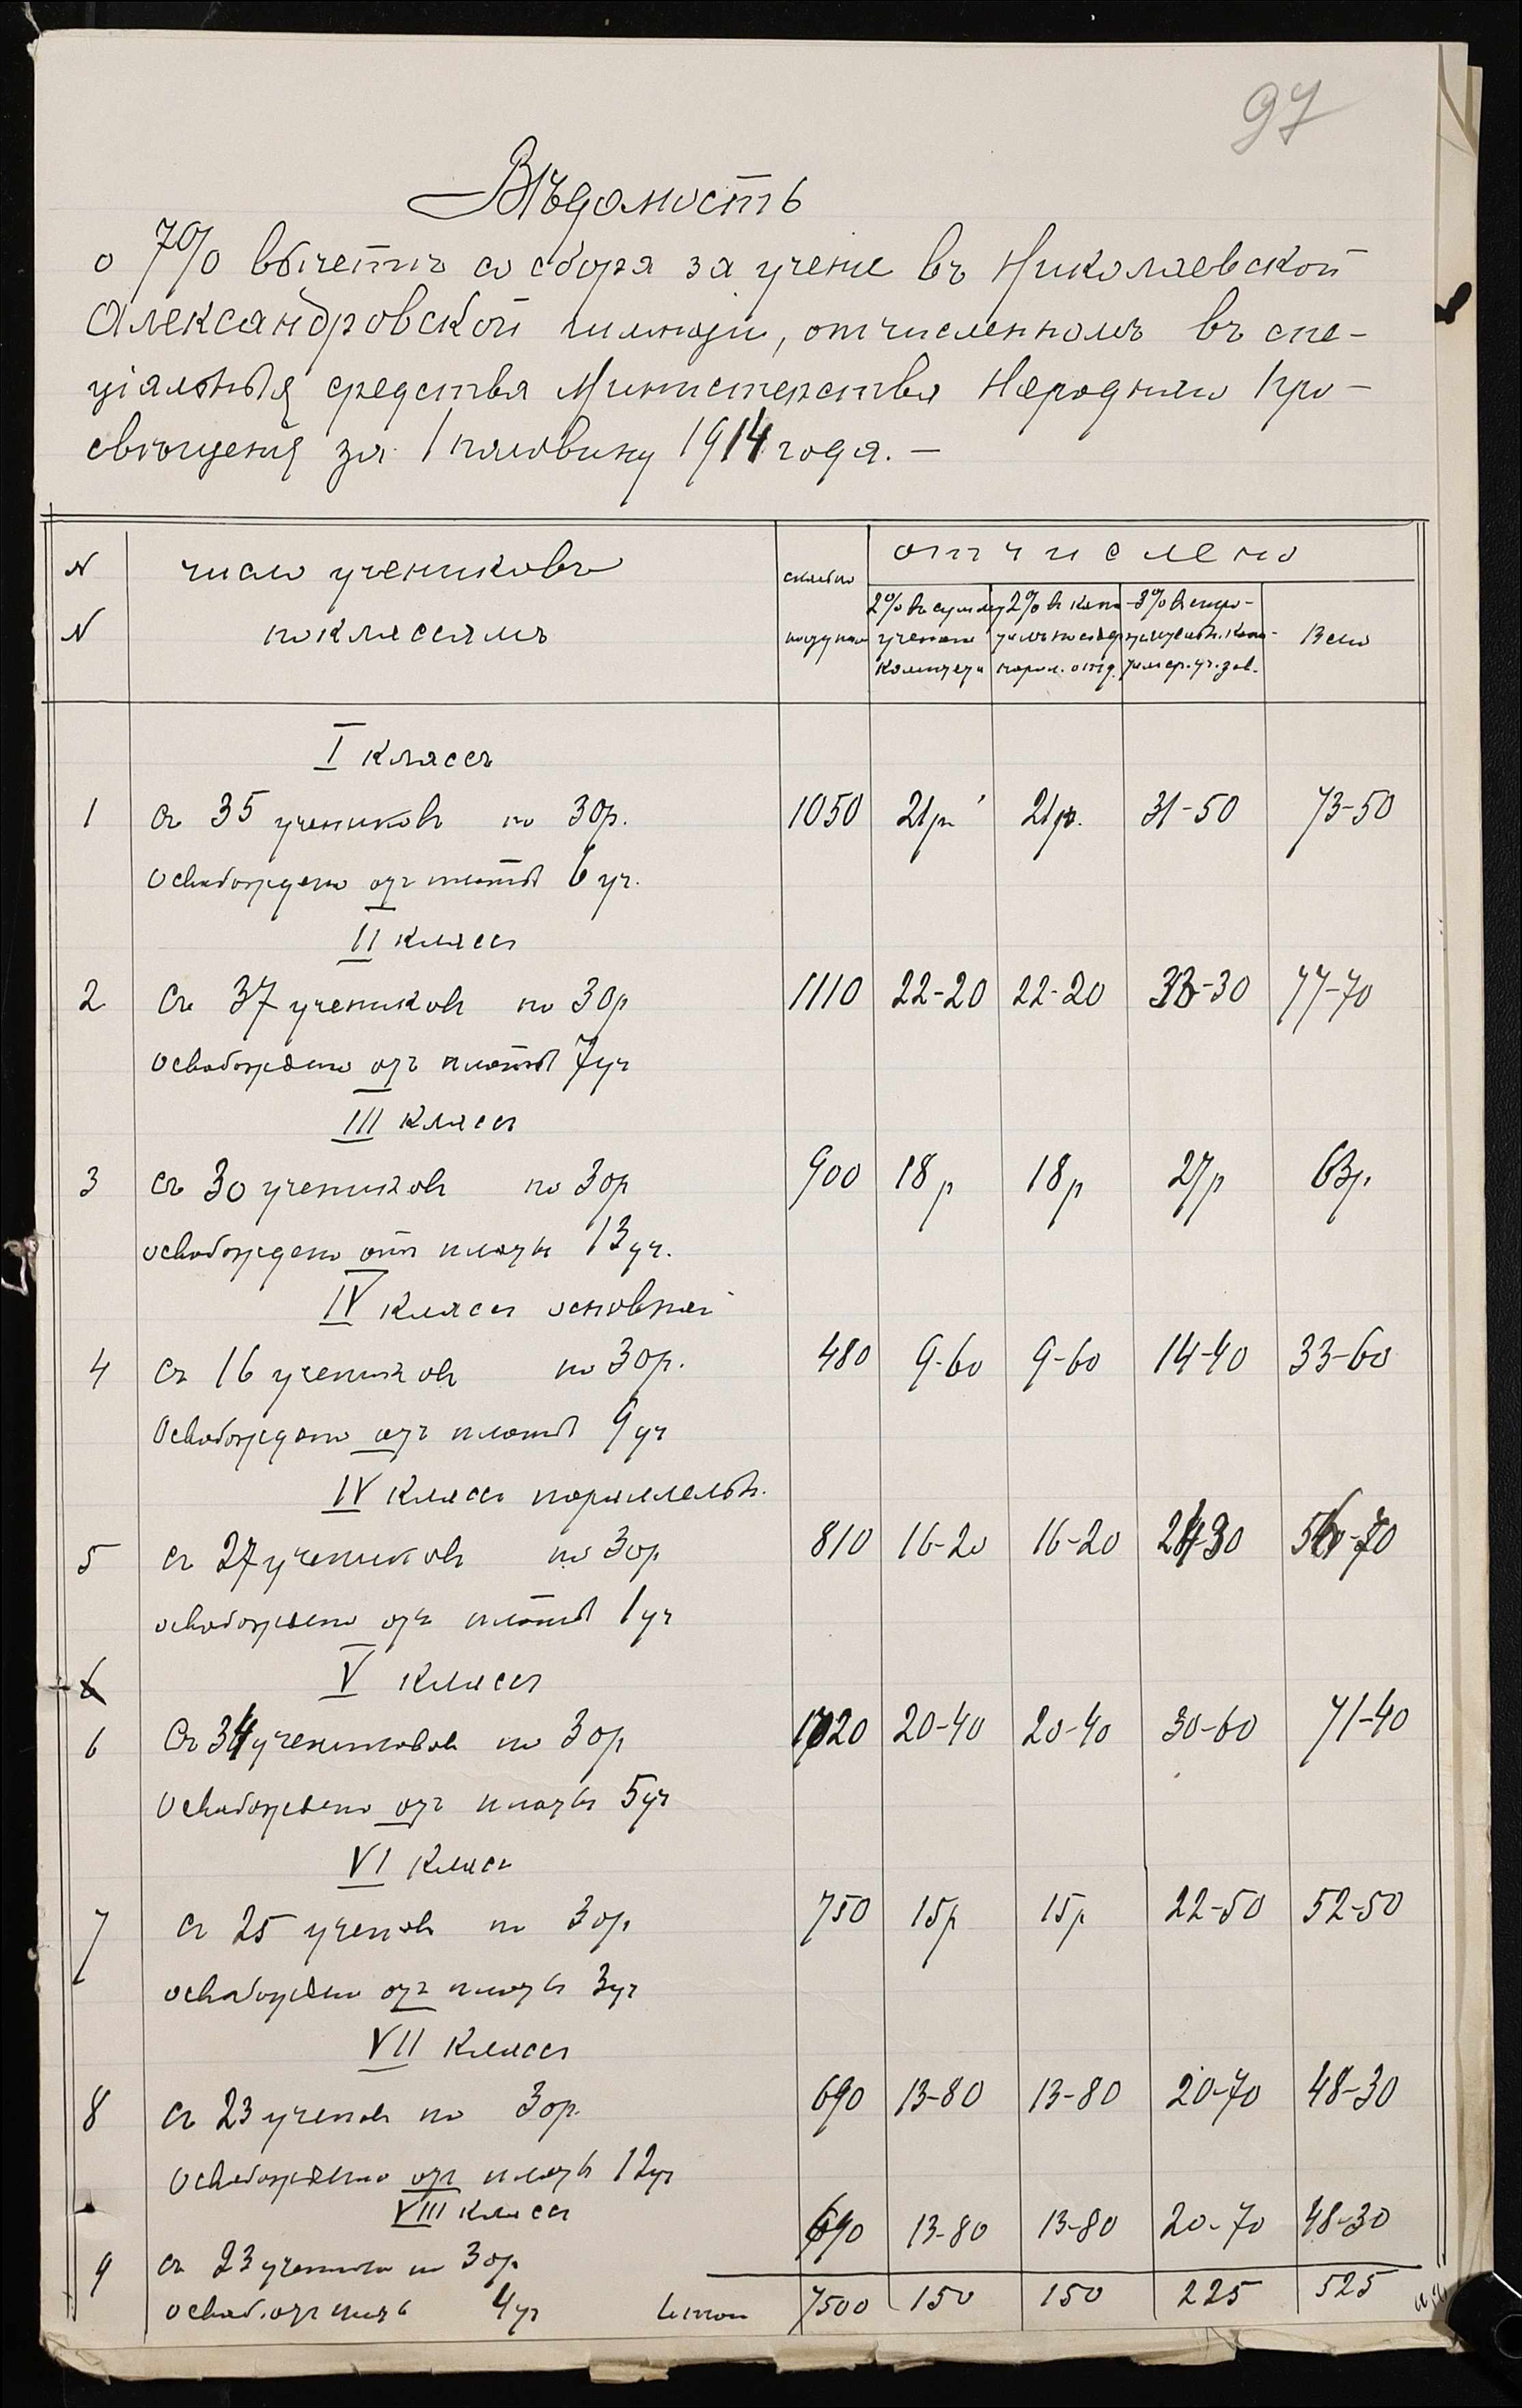 97
Вѣдомость
о 7% вычетѣ со сбора за учение въ Николаевской
Александровской гимназiи, отчисленномъ въ спе-
цiальныя средства Министерства Народнаго Про-
свѣщенiя за 1 половину 1914 года. —
N N
число учениковъ по классамъ
сколько поступило
отчислено
2% въ сумму ученаго комитета
2% въ капи-
3% въ строительн. капи-
Всего
I классъ
1 съ 35 учениковъ по 30р. 1050 21р 21р. 31-50 73-50
освобождено отъ платы 6 уч.
II классъ
2 Съ 37 учениковъ по 30р 1110 22-20 22-20 33-30 77-70
освобождено отъ платы 7 уч
III классъ
3 съ 30 учениковъ по 30р 900 18р 18р 27р 63р.
освобождено отъ платы 13 уч.
IV классъ основной
4 Съ 16 учениковъ по 30р. 480 9-60 9-60 14-40 33-60
Освобождено отъ платы 9 уч
IV классъ параллельн.
5 съ 27 учениковъ по 30р 810 16-20 16-20 24-30 56-70
освобождено отъ платы 1 уч
6 V классъ
6 Съ 34 учениковъ по 30р 1020 20-40 20-40 30-60 71-40
Освобождено отъ платы 5 уч
VI классъ
7 съ 25 учен-овъ по 30р. 750 15р 15р 22-50 52-50
освобождено отъ платы 3 уч
VII классъ
8 съ 23 учен-въ по 30р. 690 13-80 13-80 20-70 48-30
Освобождено отъ платы 12 уч
VIII классъ
9 съ 23 учениковъ по 30р. 690 13-80 13-80 20-70 48-30
освоб. отъ платы 4 уч Итого 7500 150 150 225 525